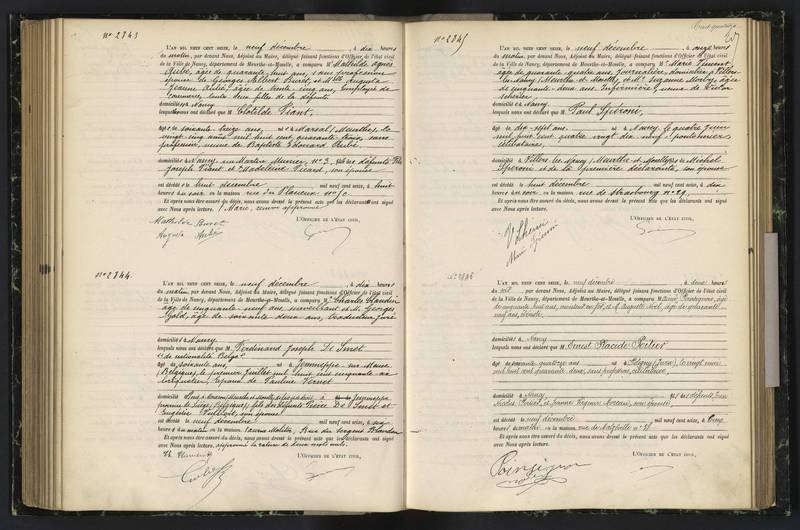 N° 2843
L'AN MIL NEUF CENT SEIZE, le neuf décembre, à dix heures
du matin, par devant Nous, Adjoint au Maire, délégué faisant fonctions d'Officier de l'état civil
de la Ville de Nancy, département de Meurthe-et-Moselle, a comparu M. Mathilde Agnès
Aubé, âgée de quarante huit ans, sans profession
épouse de Georges Buret, et Mlle Augusta
Jeanne Aubé, âgée de trente cinq ans, Employée de
commerce, toute deux filles de la défunte
domiciliés à Nancy
lesquels nous ont déclaré que M. Clotilde Piant,
âgée de soixante treize ans, née à Marsal (Meurthe), le
vingt cinq mil huit cent quarante trois, sans
profession, veuve de Baptiste Edouard Aubé.
domiciliée à Nancy, rue Martin Muner, N° 3, fille de défunts
Joseph Piant et Madeleine Picard, son épouse
est décédée le huit décembre mil neuf cent seize, à huit
heures du soir, en la maison rue du Placieux, N° 50
Et après nous être assuré du décès, nous avons dressé le présent acte que les déclarants ont signé
avec Nous après lecture.
L'OFFICIER DE L'ÉTAT CIVIL,
Mathilde Buret
Augusta Aubé
N° 2844.
L'AN MIL NEUF CENT SEIZE, le neuf décembre, à dix heures
du matin, par devant Nous, Adjoint au Maire, délégué faisant fonctions d'Officier de l'état civil
de la Ville de Nancy, département de Meurthe-et-Moselle, a comparu M. Charles
âgé de cinquante neuf ans, surveillant et M. Georges
Gold, âgé de soixante deux ans, Traducteur Juré
domiciliés à Nancy
lesquels nous ont déclaré que M. Ferdinand Joseph De Smet
de nationalité Belge
âgé de soixante ans, né à Jemeppe sur Meuse
(Belgique), le premier Juillet mil huit cent cinquante six
époux de Pauline Vernet
domicilié
province de Liège (Belgique), fils des défunts Pierre De Smet et
son épouse
est décédé le neuf décembre mil neuf cent seize, à six
heures du matin en la maison Rue du Sergent Blandan
Et après nous être assuré du décès, nous avons dressé le présent acte que les déclarants ont signé
avec Nous après lecture, approuvé la rature de deux mots nuls.
L'OFFICIER DE L'ÉTAT CIVIL,
N° 2845
L'AN MIL NEUF CENT SEIZE, le neuf décembre, à onze heures
du matin, par devant Nous, Adjoint au Maire, délégué faisant fonctions d'Officier de l'état civil
de la Ville de Nancy, département de Meurthe-et-Moselle, a comparu M. Marie
âgée de quarante quatre ans, Journalière, domiciliée à Villers
les Nancy (Meurthe et Moselle), et Mme Suzanne
de cinquante deux ans, Infirmière, veuve de Victor
domiciliée à Nancy
lesquels nous ont déclaré que M. Paul Spéroni,
âgé de dix sept ans, né à Nancy le quatre juin
mil huit cent quatre vingt dix neuf, pontonnier
célibataire,
domicilié à Villers les Nancy (Meurthe et Moselle), fils de Michel
Spéroni et de la première déclarante, son épouse
est décédé le huit décembre mil neuf cent seize, à dix
heures du soir en la maison rue de Strasbourg N° 29
Et après nous être assuré du décès, nous avons dressé le présent acte que les déclarants ont signé
avec Nous après lecture.
L'OFFICIER DE L'ÉTAT CIVIL,
N° 2846
L'AN MIL NEUF CENT SEIZE, le neuf décembre, à deux heures
du soir, par devant Nous, Adjoint au Maire, délégué faisant fonctions d'Officier de l'état civil
de la Ville de Nancy, département de Meurthe-et-Moselle, a comparu M. Poinsignon, âgé
de cinquante huit ans, et Auguste Noël, âgé de quarante
neuf ans,
domiciliés à Nancy
lesquels nous ont déclaré que M. Ernest Placide Poitier
âgé de soixante quatorze ans né à Poligny (Jura), le vingt
mil huit cent quarante deux, sans profession, célibataire,
domicilié à Nancy fils de défunts
son épouse
est décédé le neuf décembre mil neuf cent seize, à cinq
heures du matin en la maison, rue de Malzéville N° 28
Et après nous être assuré du décès, nous avons dressé le présent acte que les déclarants ont signé
avec Nous après lecture.
L'OFFICIER DE L'ÉTAT CIVIL,
Poinsignon